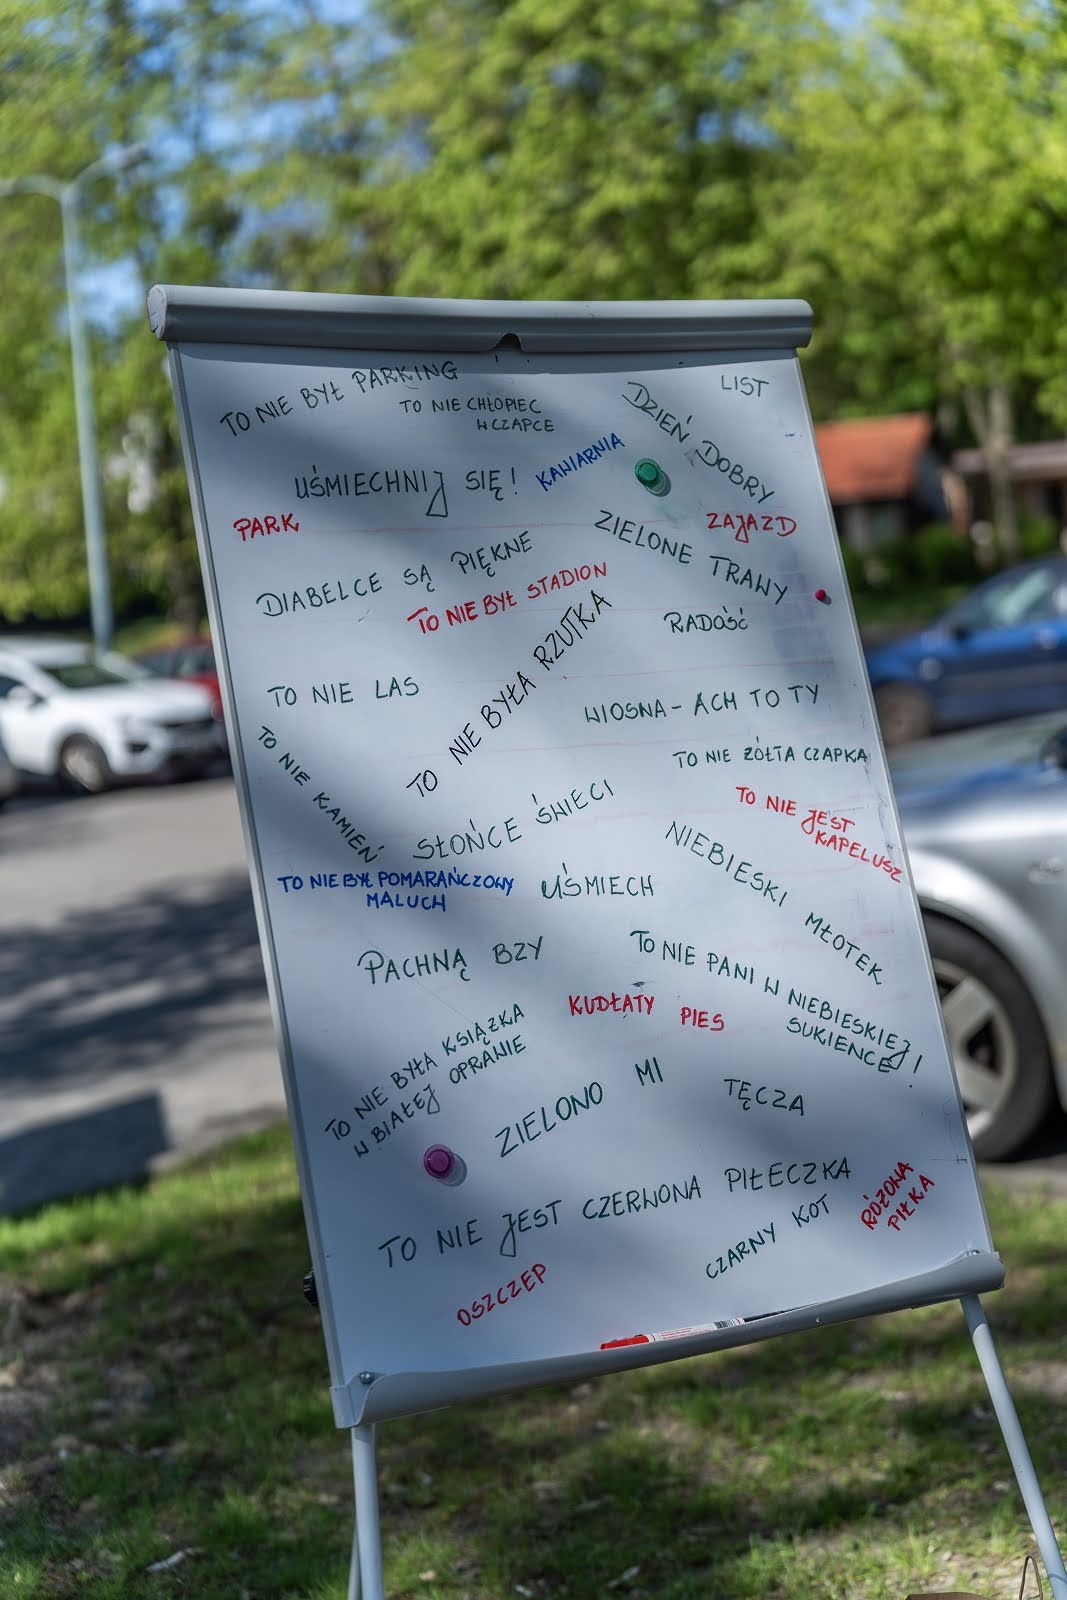 TO NIE BYŁ PARKING
LIST
TO NIE CHŁOPIEC
W CZAPCE
DZIEŃ DOBRY
KAWIARNIA
UŚMIECHNIJ SIĘ!
PARK
ZAJAZD
ZIELONE TRAWY
DIABELCE SĄ PIĘKNE
TO NIE BYŁ STADION
RADOŚĆ
TO NIE BYŁA RZUTKA
TO NIE LAS
WIOSNA - ACH TO TY
TO NIE KAMIEŃ
TO NIE ŻÓŁTA CZAPKA
SŁOŃCE ŚWIECI
TO NIE JEST
KAPELUSZ
NIEBIESKI MŁOTEK
TO NIE BYŁ POMARAŃCZOWY
MALUCH
UŚMIECH
PACHNĄ BZY
TO NIE PANI W NIEBIESKIEJ
SUKIENCE!
KUDŁATY PIES
TO NIE BYŁA KSIĄŻKA
W BIAŁEJ OPRAWIE
ZIELONO MI
TĘCZA
TO NIE JEST CZERWONA PIŁECZKA
RÓŻOWA
PIŁKA
CZARNY KOT
OSZCZEP